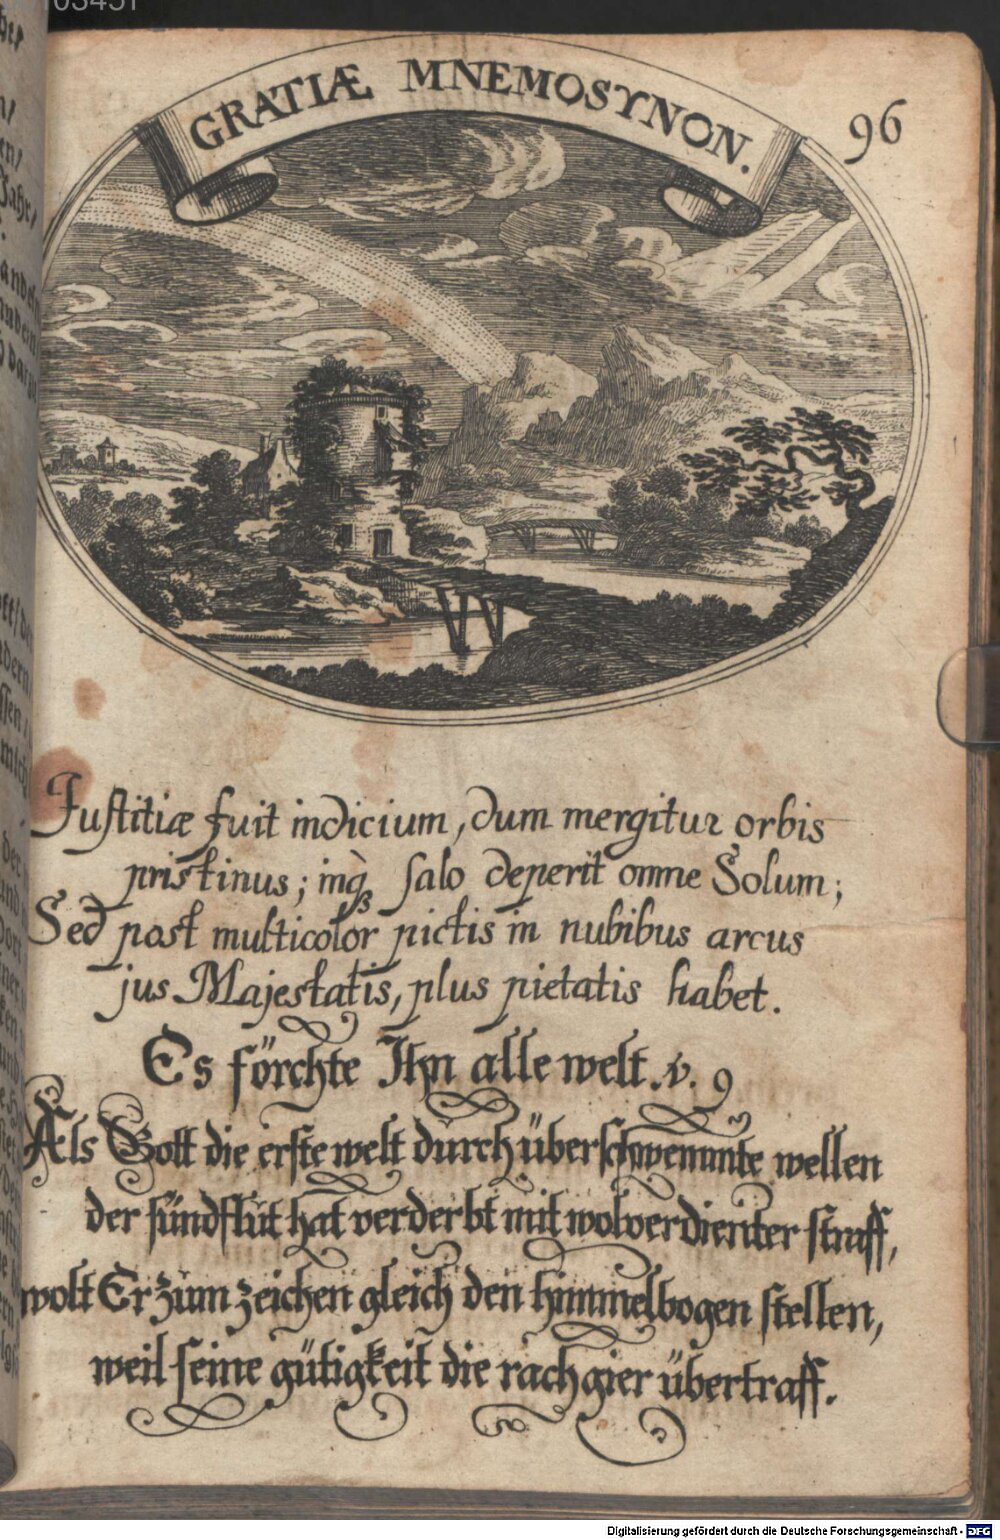 GRATIÆ MNEMOSYNON.
96
Iustitiæ fuit indicium, dum mergitur orbis
pristinus; inq̃ salo deperit omne Solum;
Sed post multicolor pictis in nubibus arcus
jus Majestatis, plus pietatis habet.
Es förchte Ihn alle welt. v. 9
Als Gott die erste welt durch überschwemmte wellen
der sündflut hat verderbt mit wolverdienter straff,
wolt Er zum zeichen gleich den himmelbogen stellen,
weil seine gütigkeit die rachgier übertraff.
Digitalisierung gefördert durch die Deutsche Forschungsgemeinschaft - DFG